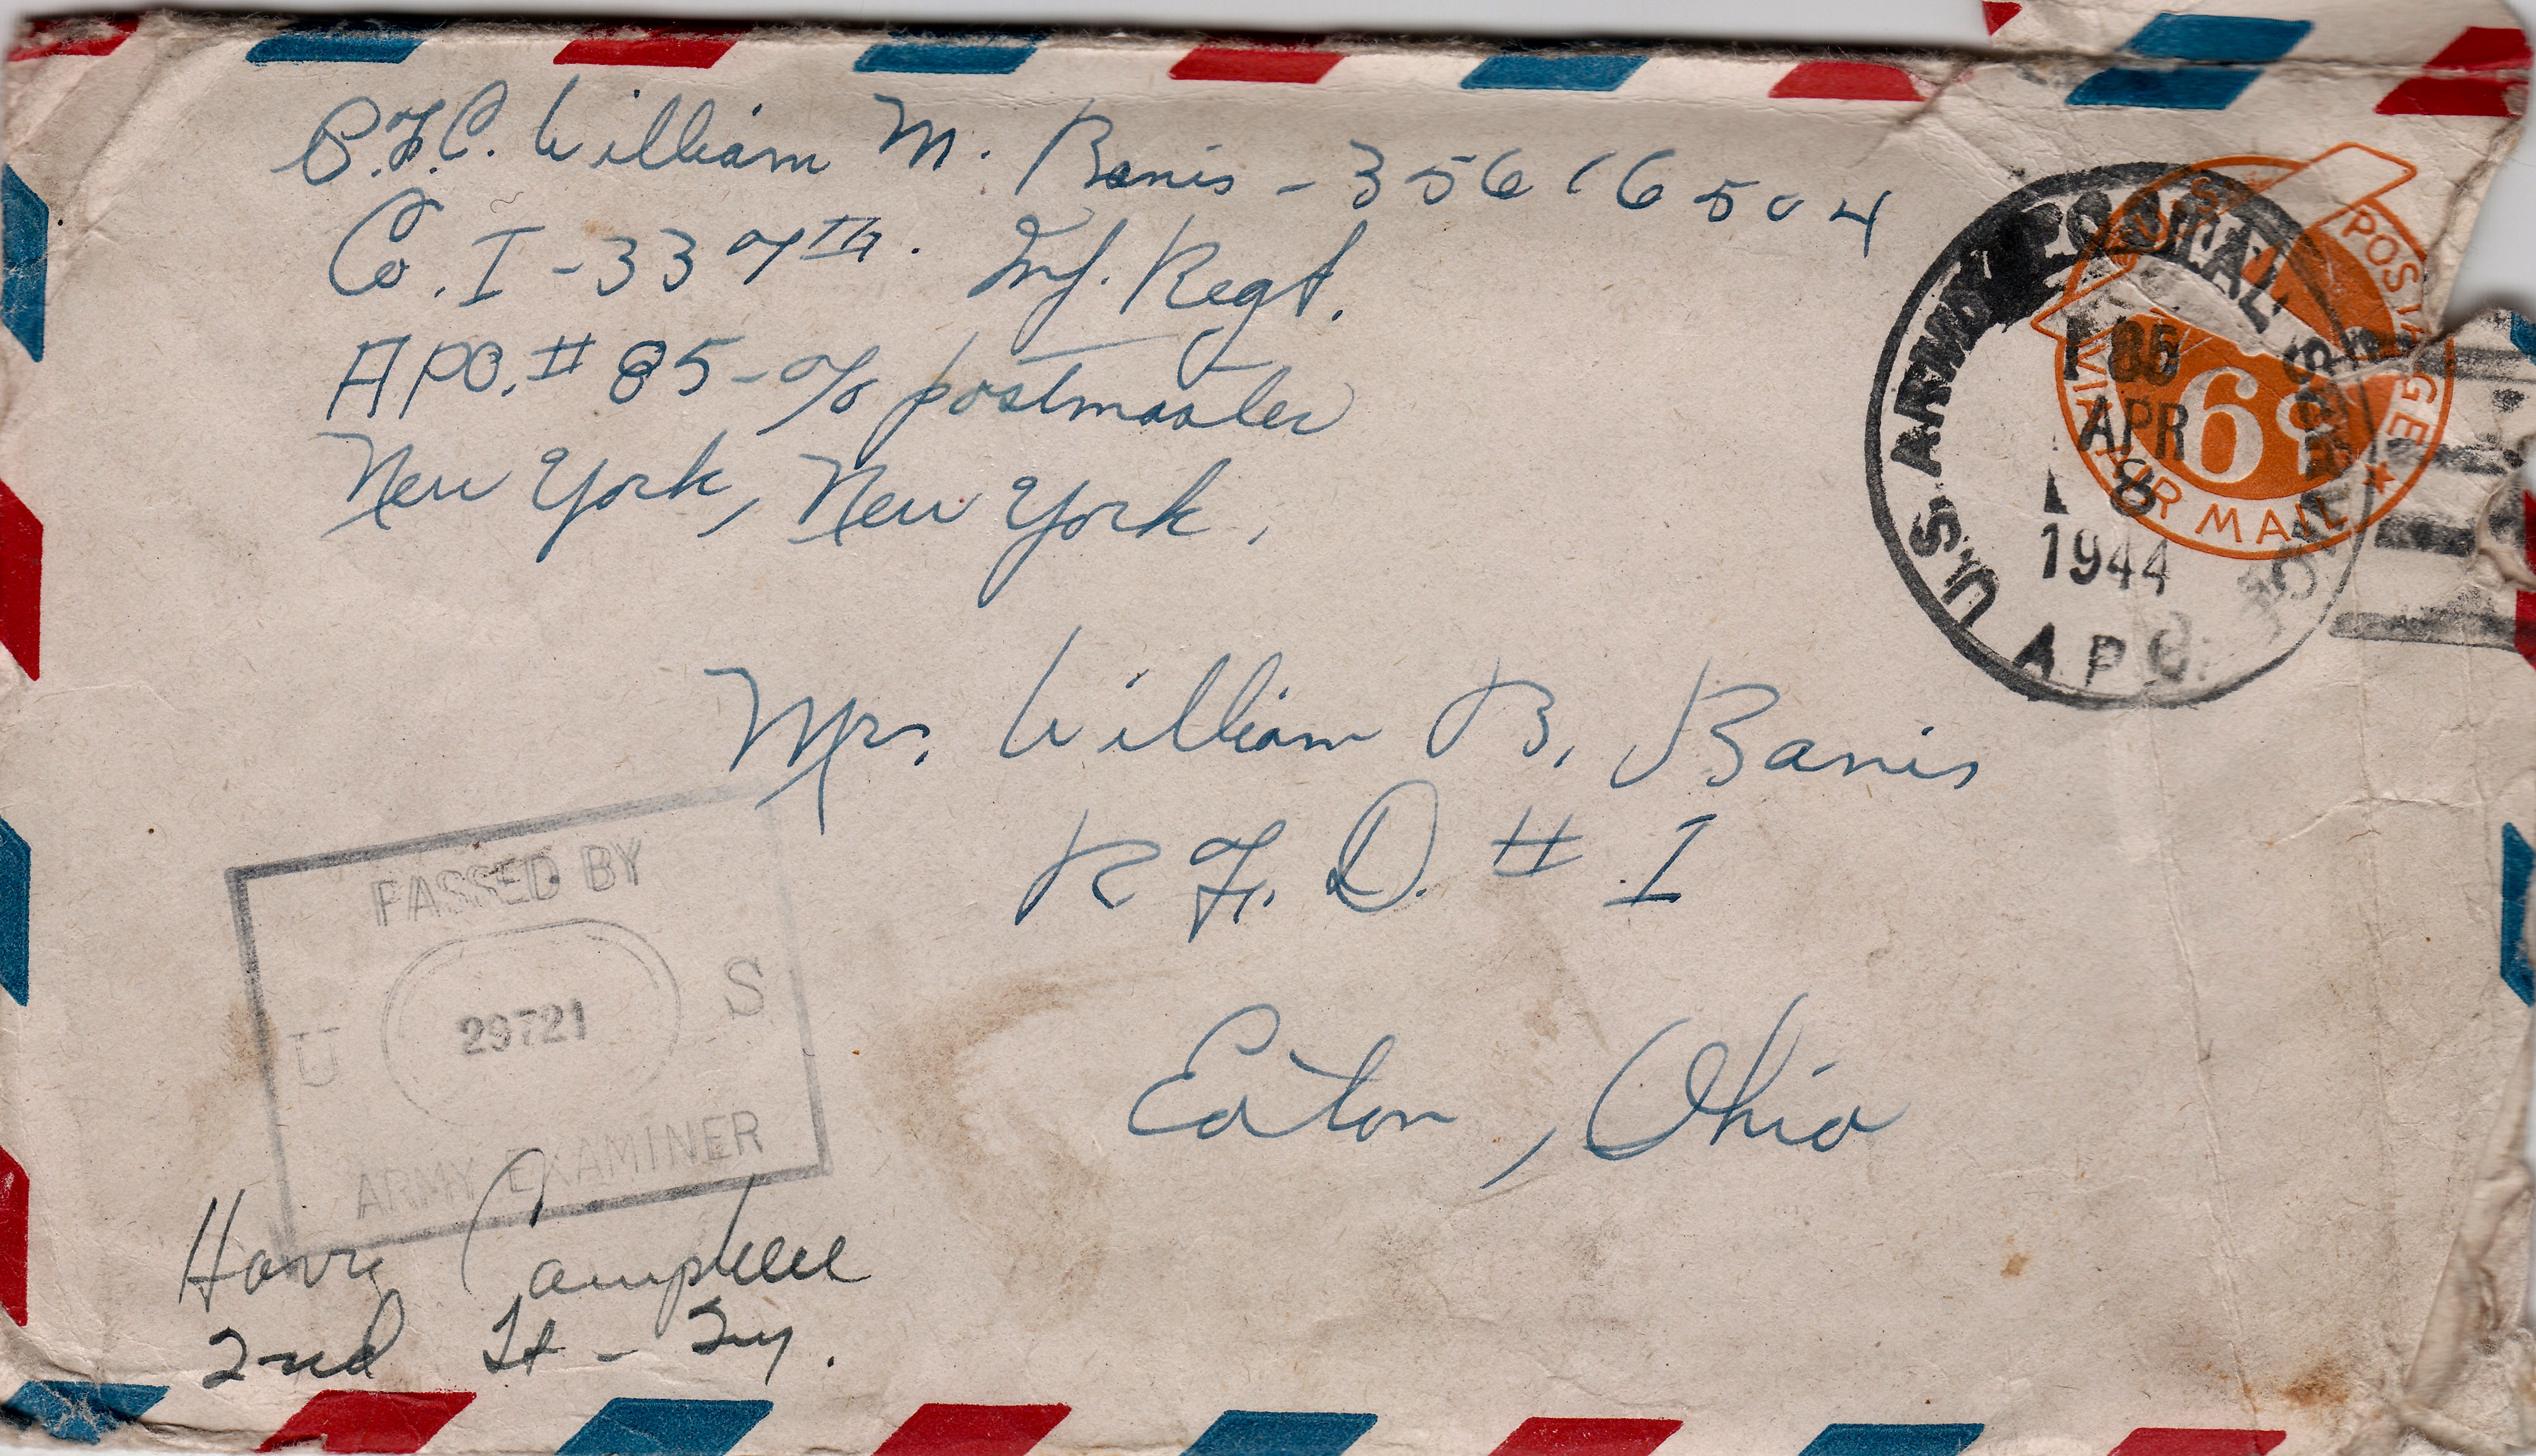 P.F.C. William M. Banis - 35616504
Co. I - 337TH. Inf. Regt.
A P O. # 85 - c/o postmaster
New York, New York,
U.S. ARMY POSTAL SERVICE
APR
8
1944
A.P.O.
U.S. POSTAGE
6¢
VIA AIR MAIL
Mrs. William B. Banis
R. F. D. # I
Eaton, Ohio
PASSED BY
U 29721 S
ARMY EXAMINER
Harry Campbell
2nd Lt - Inf.